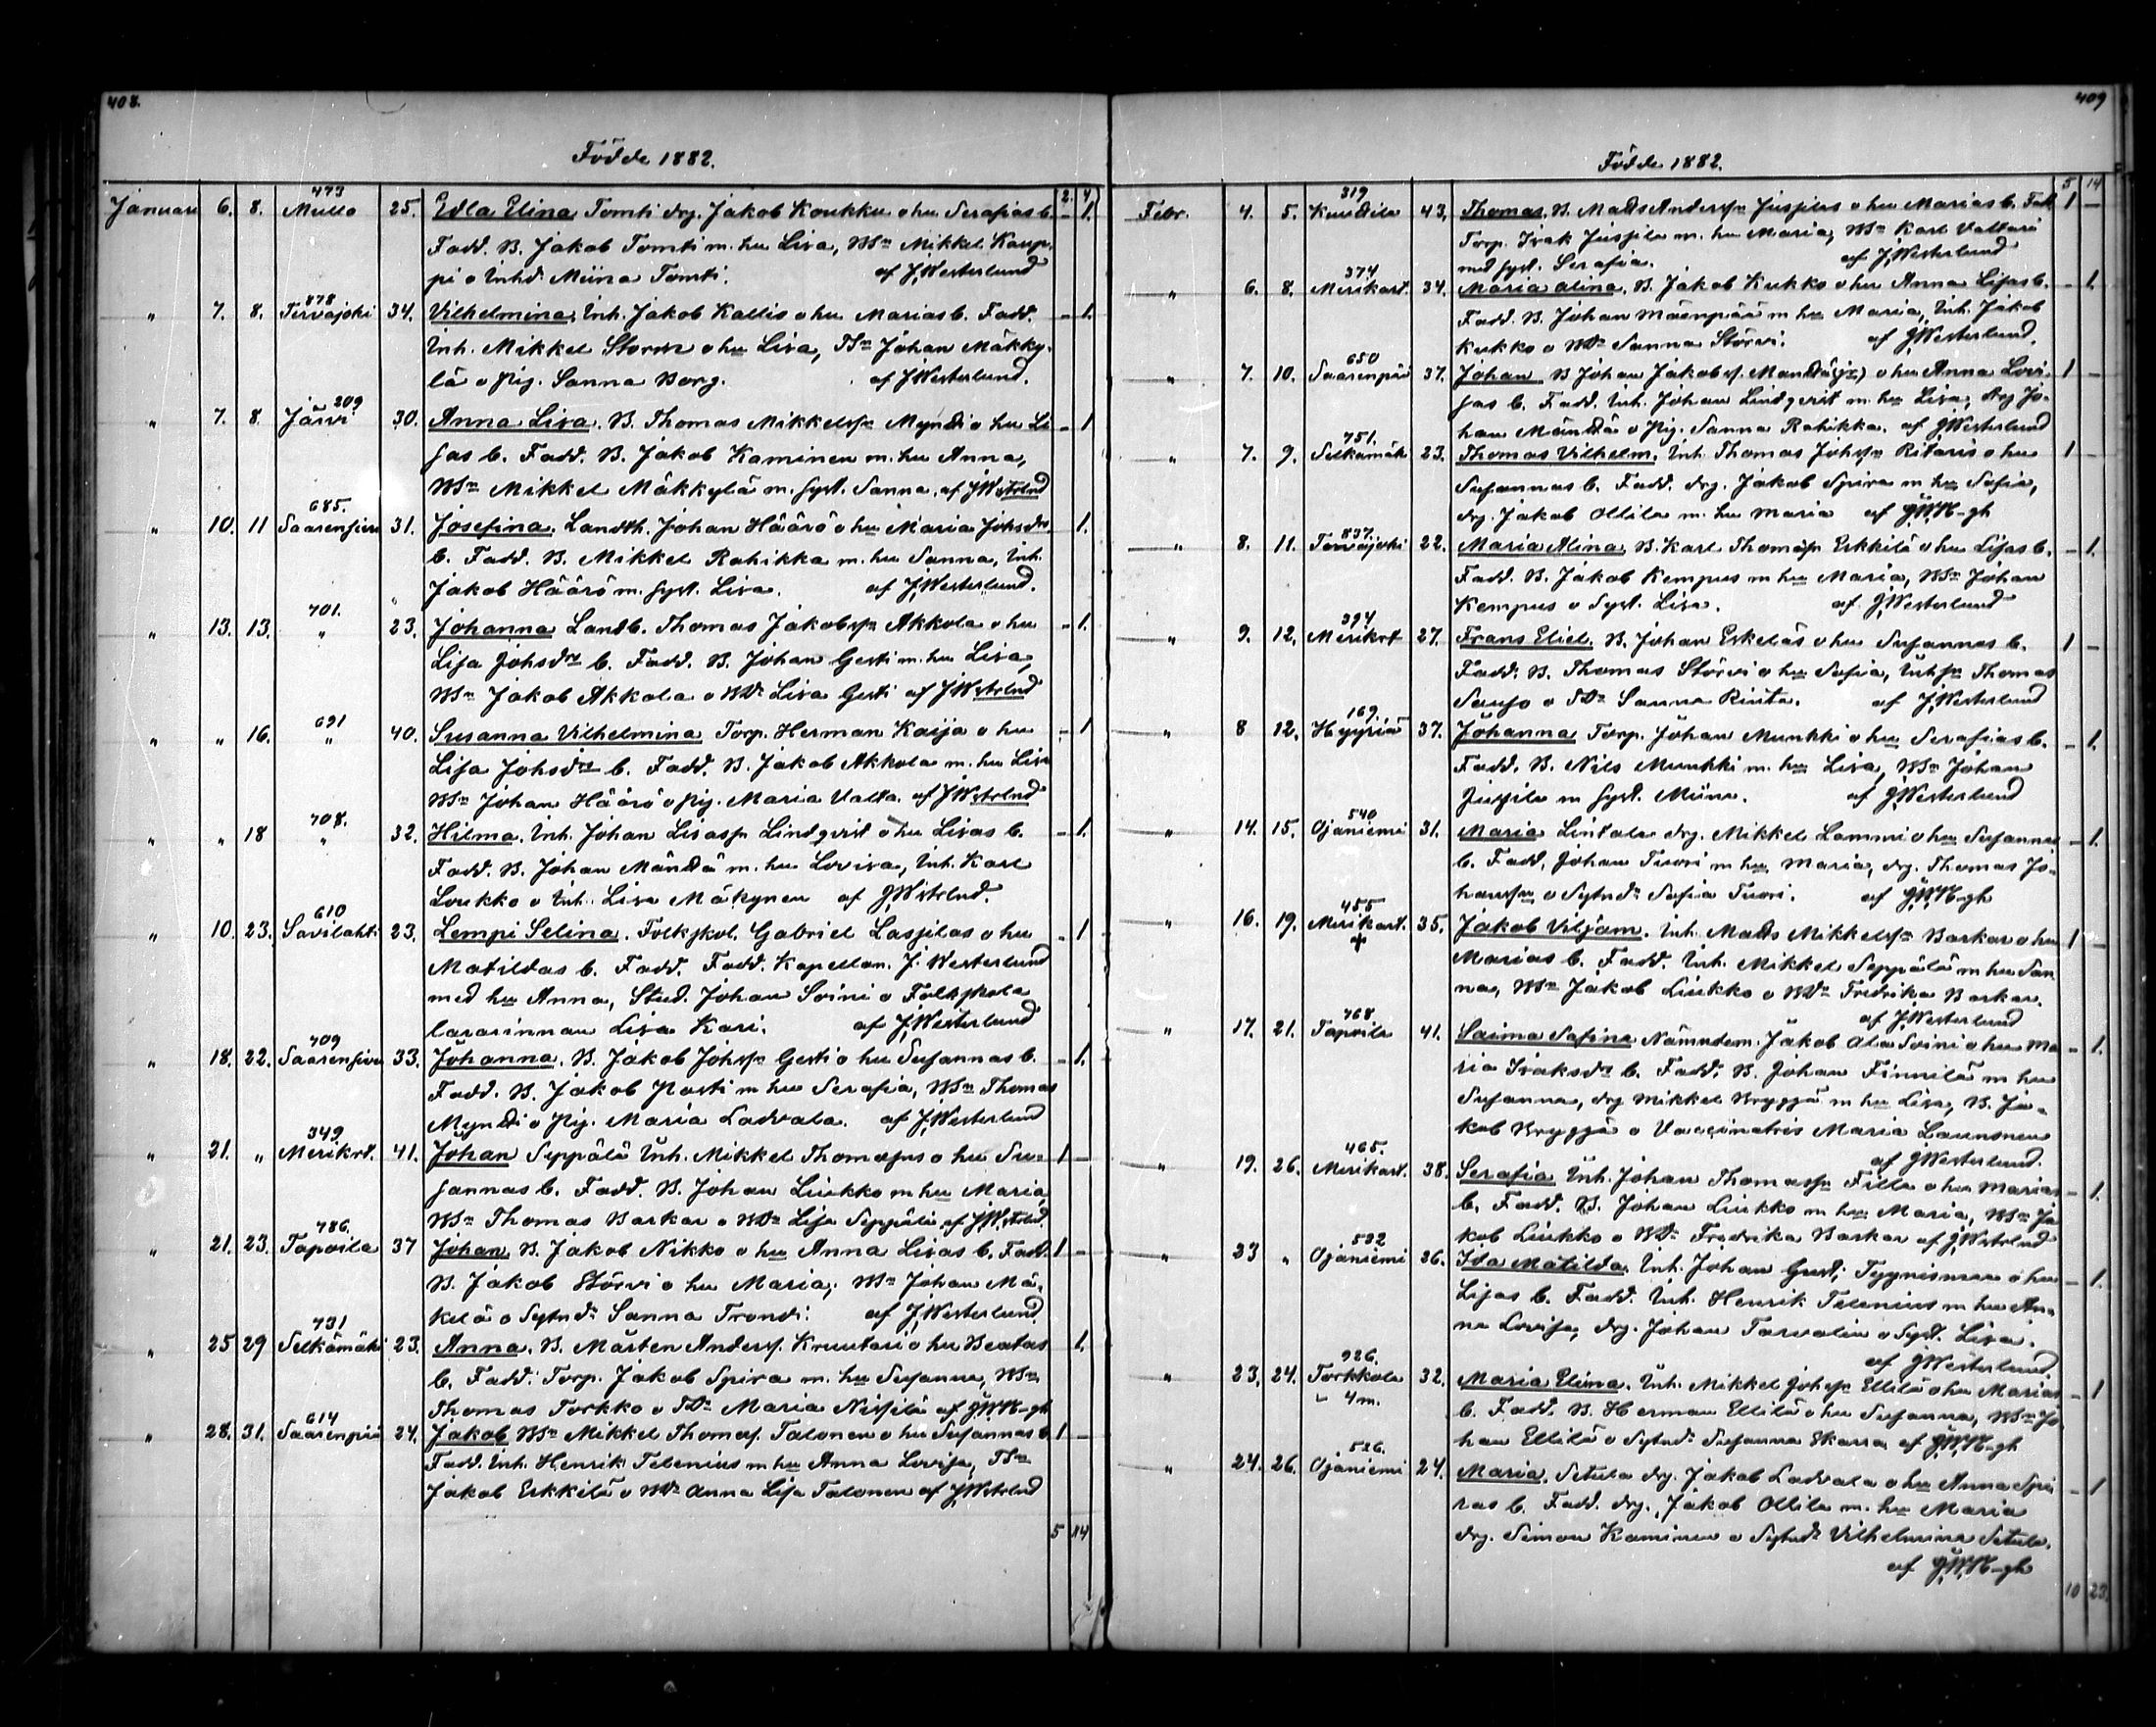 408.
Födde 1882.
2. 4.
473
Januari 6. 8. Mullo 25. Edla Elina Tomti drg. Jakob Koukku o hu Serafias b. - 1.
Fadd. B. Jakob Tomti m. hu Lisa, Bsn Mikkel Kaup-
pi o Inhd. Miina Tomti. af J.Westerlund
878
" 7. 8. Tervajoki 34. Vilhelmina, Inh. Jakob Kallis o hu Marias b. Fadd. - 1.
Inh. Mikkel Storm o hu Lisa, Tsn Johan Mäkky-
lä o Pig. Sanna Borg. af J.Westerlund.
209
" 7. 8 Järvi 30. Anna Lisa. B. Thomas Mikkelsn Myndi o hu Li - 1
sas b. Fadd. B. Jakob Kaminen m. hu Anna,
Bsn Mikkel Mäkkylä m. syst. Sanna. af J.Wstrlnd
685.
" 10. 11 Saarensivu 31. Josefina. Landth. Johan Häärö o hu Maria Johsdrs 1.
b. Fadd. B. Mikkel Rahikka m. hu Sanna, Inh.
Jakob Häärö m. syst. Lisa. af J.Westerlund.
701.
" 13. 13. " 23. Johanna Landb. Thomas Jakobsn Akkola o hu - 1.
Lisa Johsdrs b. Fadd. B. Johan Gesti m. hu Lisa,
Bsn Jakob Akkola o Bdr Lisa Gesti af J.Wstrlnd
691
" " 16. " 40. Susanna Vilhelmina Torp. Herman Kaija o hu - 1
Lisa Johsdrs b. Fadd. B. Jakob Akkola m. hu Lisa
Bsn Johan Häärö o Pig. Maria Valta. af J.Wstrlnd
708.
" " 18 " 32. Hilma. Inh. Johan Lisasn Lindqvist o hu Lisas b. - 1.
Fadd. B. Johan Mändä m. hu Lovisa, Inh. Karl
Loukko o Inh. Lisa Mäkynen af J.Wstrlnd.
610
" 10. 23. Savilahti 23. Lempi Selina. Folkskol. Gabriel Lassilas o hu - 1
Matildas b. Fadd. Fadd. Kapellan. J. Westerlund
med hu Anna, Stud. Johan Soini o Folkskola
lararinnan Lisa Kari. af J.Westerlund
709
" 18. 22. Saarensivu 33. Johanna. B. Jakob Johsn Gesti o hu Susannas b. - 1.
Fadd. B. Jakob Pasti m hu Serafia, Bsn Thomas
Myndi o Pig. Maria Ladvala. af J.Westerlund
349
" 21. " Merikrt. 41. Johan Seppälä Inh. Mikkel Thomasns o hu Su- 1 -
sannas b. Fadd. B. Johan Liukko m hu Maria
Bsn Thomas Barkar o Bdr Lisa Seppälä af J.Wstrlnd.
786.
" 21. 23. Tapoila 37 Johan B. Jakob Nikko o hu Anna Lisas b. Fadd. 1 -
B. Jakob Störvi o hu Maria, Bsn Johan Mä-
kelä o Sytndr Sanna Trondi. af J.Westerlund.
731
" 25 29 Selkämäki 23. Anna. B. Mårten Anders. Kruutari o hu Beatas 1.
b. Fadd. Torp. Jakob Spira m. hu Susanna, Bsn
Thomas Torkko o Tdr Maria Nissilä af J.W.H-gh
614
" 28. 31. Saarenpää 24. Jakob Bsn Mikkel Thomas. Talonen o hu Susannas b 1 -
Fadd. Inh. Henrik Telenius m hu Anna Lovisa, Tsn
Jakob Erkkilä o Bdr Anna Lisa Talonen af J.Wstrlnd
5 14

409
Födde 1882.
5 14
319
Febr. 4. 5. Kurdila 43. Thomas. B. Mads Andersn Jussilas o hu Marias b. Fad. 1 -
Torp. Isak Jussila m. hu Maria, Bsn Karl Valtari
med syst. Serafia. af J.Westerlund
374
" 6. 8. Merikart. 34. Maria Alina. B. Jakob Kukko o hu Anna Lisas b. - 1.
Fadd. B. Johan Mäenpää m hu Maria, Inh. Jakob
Kukko o Bdr Sanna Störvi. af J.Westerlund.
650
" 7. 10. Saarenpää 37. Johan B Johan Jakobs. Mändä (jr) o hu Anna Lovi- 1 -
sas b. Fadd. Inh. Johan Lindqvist m. hu Lisa, drg Jo-
han Mändä o Pig. Sanna Rahikka. af J.Westerlund
751.
" 7. 9. Selkämäk 23. Thomas Vilhelm, Inh. Thomas Johsn Ritaris o hu 1 -
Susannas b. Fadd. drg. Jakob Spira m hu Sofia,
drg. Jakob Ollila m. hu Maria af J.W.H-gh
837.
" 8. 11. Tervajoki 22. Maria Alina, B. Karl Thomasn Erkkilä o hu Lisas b. - 1.
Fadd. B. Jakob Kempus m hu Maria, Bsn Johan
Kempus o Syst. Lisa. af J.Westerlund
394
" 9. 12. Merikrt 27. Frans Eliel. B. Johan Eskeläs o hu Susannas b. 1 -
Fadd. B. Thomas Störvi o hu Sofia, Inhsn Thomas
Saujo o Tdr Sanna Rinta. af J.Westerlund
169.
" 8 12. Hyyriä 37. Johanna Torp. Johan Munkki o hu Serafias b. - 1.
Fadd. B. Nils Munkki m. hu Lisa, Bsn Johan
Jussila m syst. Miina. af J.Westerlund
540
" 14. 15. Ojaniemi 31. Maria Lintala drg. Mikkel Lammi o hu Susannas - 1.
b. Fadd, Johan Tuori m hu Maria, drg. Thomas Jo-
hansn o Sytndr Sofia Tuori. af J.W.H-gh
455
" 16. 19. Merikart. 35. Jakob Viljam. Inh. Mads Mikkelsn Barkar o hu 1 -
+
Marias b. Fadd. Inh. Mikkel Seppälä m hu San
na, Bsn Jakob Liukko o Bdr Fredrika Barkar.
af J.Westerlund
768
" 17. 21. Tapoila 41. Saima Safina Nämndem. Jakob Ala Soini o hu Ma - 1.
ria Isaksdrs b. Fadd. B. Johan Finnilä m hu
Susanna, drg Mikkel Bryggä m hu Lisa, B. Ja-
kob Bryggä o Vaccinatris Maria Launonen
af J.Westerlund.
465.
" 19. 26. Merikart. 38. Serafia Inh. Johan Thomasn Filla o hu Marias - 1.
b. Fadd. B. Johan Liukko m hu Maria, Bsn Ja
kob Liukko o Bdr Fredrika Barkar af J.Wstrlnd
532
" 23 " Ojaniemi 26. Ida Matilda. Inh. Johan Gust. Tyynismaa o hu - 1.
Lisas b. Fadd. Inh. Henrik Telenius m hu An-
na Lovisa, drg. Johan Tarvalin o Syst. Lisa.
af J.Westerlund
926.
" 23. 24. Torkkola 32. Maria Elima. Inh. Mikkel Johsn Ellilä o hu Marias - 1
4 m.
b. Fadd. B. Herman Ellilä o hu Susanna, Bsn Jo
han Ellilä o Sytndr Susanna Skarra af J.W.H-gh
526.
" 24. 26. Ojaniemi 24. Maria. Setula drg. Jakob Ladvala o hu Anna Spi - 1
ras b. Fadd. drg. Jakob Ollila m. hu Maria
drg. Simon Kaminen o Sytndr Vilhelmina Setula.
af J.W.H-gh
10 23.